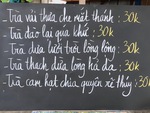 - Trà vải thưa che mắt thánh: 30k
- Trà đào lại quá khứ: 30k
- Trà dưa lưới trời lồng lộng: 30k
- Trà thạch dừa lòng hả dạ: 30k
- Trà cam hạt chia quyền xẻ thịt: 30k